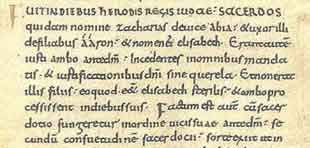 UITINDIEBUS hERODIS REGIS IUDAE· SACERDOS
quidam nomine zacharias deuice abia· &uxor illi
defiliabus áaron· & nomenei elisabeth· Erantautem
iusti ambo antedm̄· Incedentes inomnibus manda
tis· & iustificationibus dn̄i sine querela· Etnonerat
illis filius· eoquod eēt elisabeth sterilis· & ambo pro
cessissent indiebus suis Factum est autē cū sacer
dotio fungeretur inordine uicis suae antedm̄· se
cundū consuetudinē sacerdotii· sorte exiit ut in